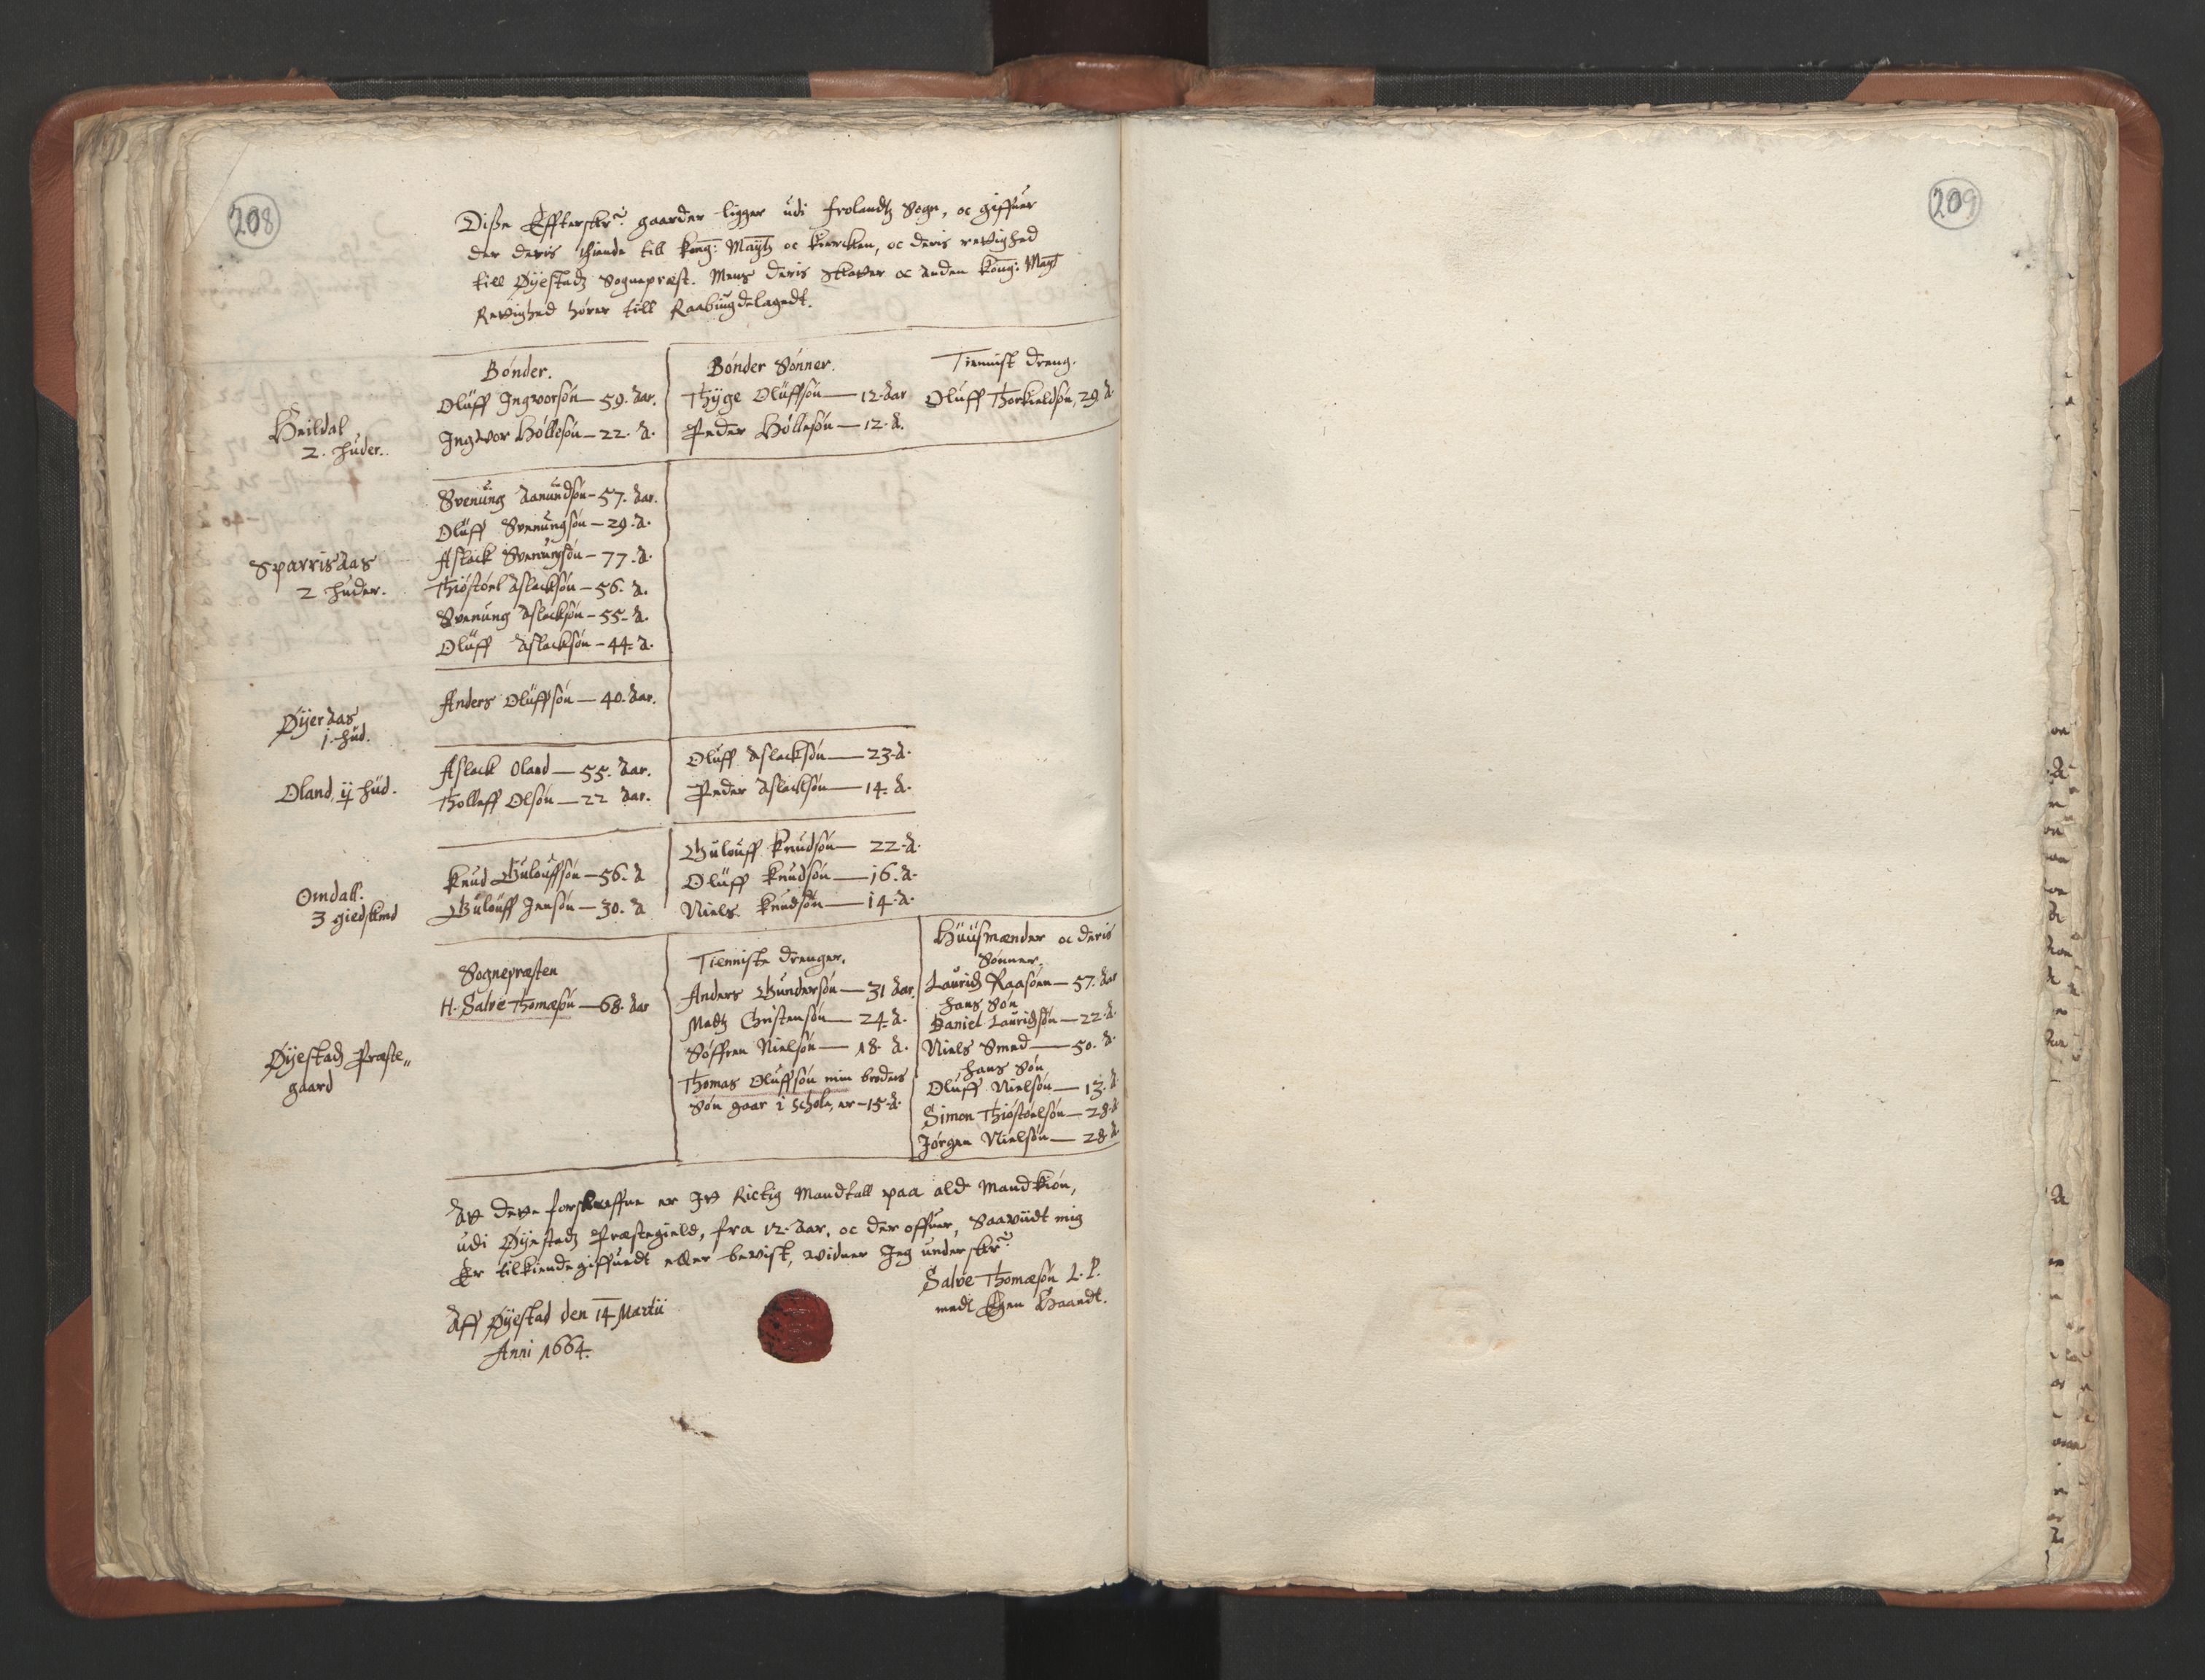 208
Disse Effterskr: gaarder ligger udi Frolandtz Sogn, oc giffuer
der deris thiende till Kong: Maytz oc Kiercken, oc deris rettighed
till Øyestadz Sognepræst. Mens deris skatter oc anden Kong: Maytz
Rettighed hører till Raabugdelagedt.
Bønder. Bønder Sønner. Tiennist dreng.
Heildal
2. huder.
Oluff Ingworsøn — 59. Aar. Thyge Oluffsøn — 12. Aar Oluff Thorkieldsøn, 29 A.
Ingwor Hollesøn — 22. A. Peder Hollesøn — 12. A.
Sparrisaas
2 huder.
Svenung Aanundsøn — 57. Aar.
Oluff Svenungsøn — 29. A.
Aslack Svenungsøn — 77. A.
Thiostoel Aslacksøn — 56. A.
Svenung Aslacksøn — 55. A.
Oluff Aslacksøn — 44. A.
Øyeraas
1. hud.
Anders Oluffsøn — 40. Aar.
Oland ij hud.
Aslack Oland — 55. Aar. Oluff Aslacksøn — 23. A.
Tholleff Olsøn — 22 Aar. Peder Aslacksøn — 14. A.
Omdall.
3 giedskind
Gulouff Knudsøn — 22. A.
Knud Gulouffsøn — 56. A Oluff Knudsøn — 16. A.
Gulouff Jensøn — 30. A Niels Knudsøn — 14. A.
Øyestadz Præste„
gaard
Sognepræsten
H. Salve Thomæsøn — 68. Aar
Tienniste drenger.
Anders Gundersøn — 31 Aar.
Madtz Christensøn — 24. A.
Søffren Nielsøn — 18. A.
Thomas Oluffsøn min broders
Søn gaar i schole, er — 15. A.
Huusmænder oc deris
Sønner.
Lauridz Raasoen — 57. Aar
hans Søn
Daniel Lauridsøn — 22. A.
Niels Smed — 50. A.
hans Søn
Oluff Nielsøn — 13. A
Simon Thiostoelsøn — 28. A
Jørgen Nielsøn — 28. A
At dette forskreffne er Jet Rictig Mandtall paa ald Mandkiøn,
udi Øyestadz Præstegield, fra 12. Aar, oc der offuer, Saawiidt mig
Er tilkiendegiffuedt eller bevist, vidner Jeg underskr:
Salve Thomæsøn L. P.
medt Egen Haandt.
Aff Øyestad den 14 Martii
Anni 1664.
209